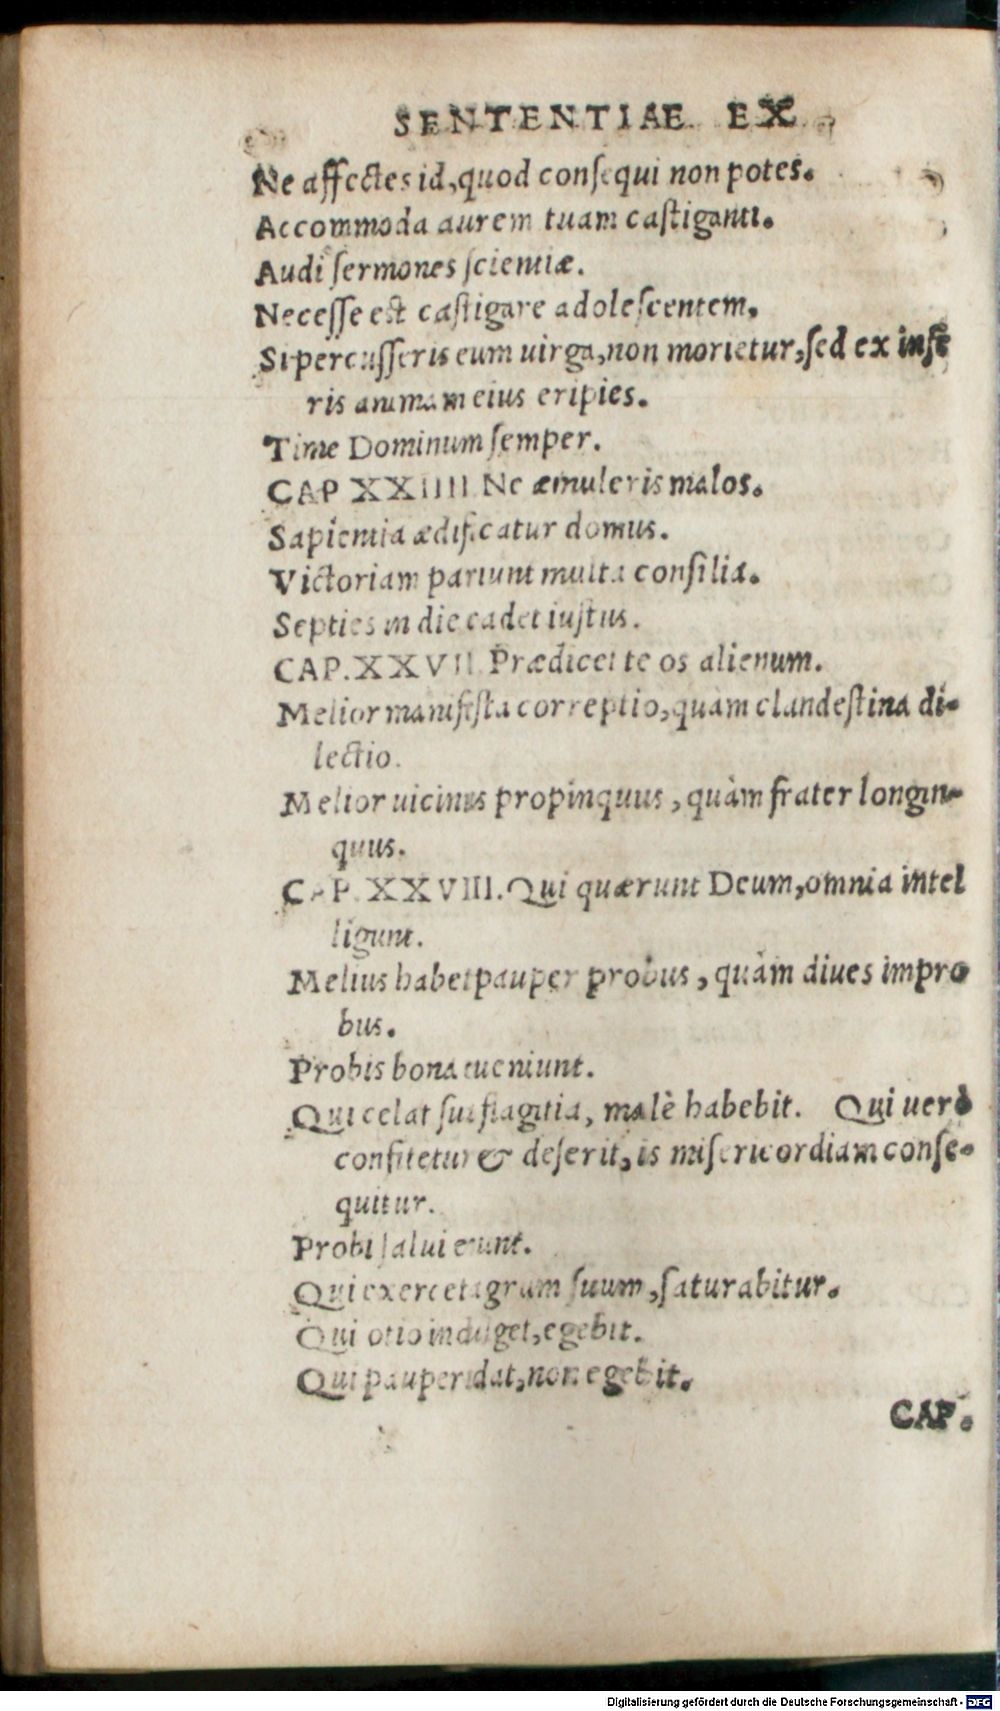 SENTENTIAE EX
Ne affectes id, quod consequi non potes.
Accommoda aurem tuam castiganti.
Audi sermones scientiæ.
Necesse est castigare adolescentem.
Si percusseris eum uirga, non morietur, sed ex infe
ris animam eius eripies.
Time Dominum semper.
CAP XXIIII Ne æmuleris malos.
Sapientia ædificatur domus.
Victoriam pariunt multa consilia.
Septies in die cadet iustus.
CAP. XXVII Prædicet te os alienum.
Melior manifesta correptio, quàm clandestina di-
lectio.
Melior uicinus propinquus, quàm frater longin-
quus.
CAP. XXVIII. Qui quærunt Deum, omnia intel
ligunt.
Melius habet pauper probus, quàm diues impro
bus.
Probis bona eueniunt.
Qui celat sua flagitia, malè habebit. Qui uerò
confitetur & deserit, is misericordiam conse-
quitur.
Probi salui erunt.
Qui exercet agrum suum, saturabitur.
Qui otio indulget, egebit.
Qui pauperi dat, non egebit.
CAP.
Digitalisierung gefördert durch die Deutsche Forschungsgemeinschaft - DFG